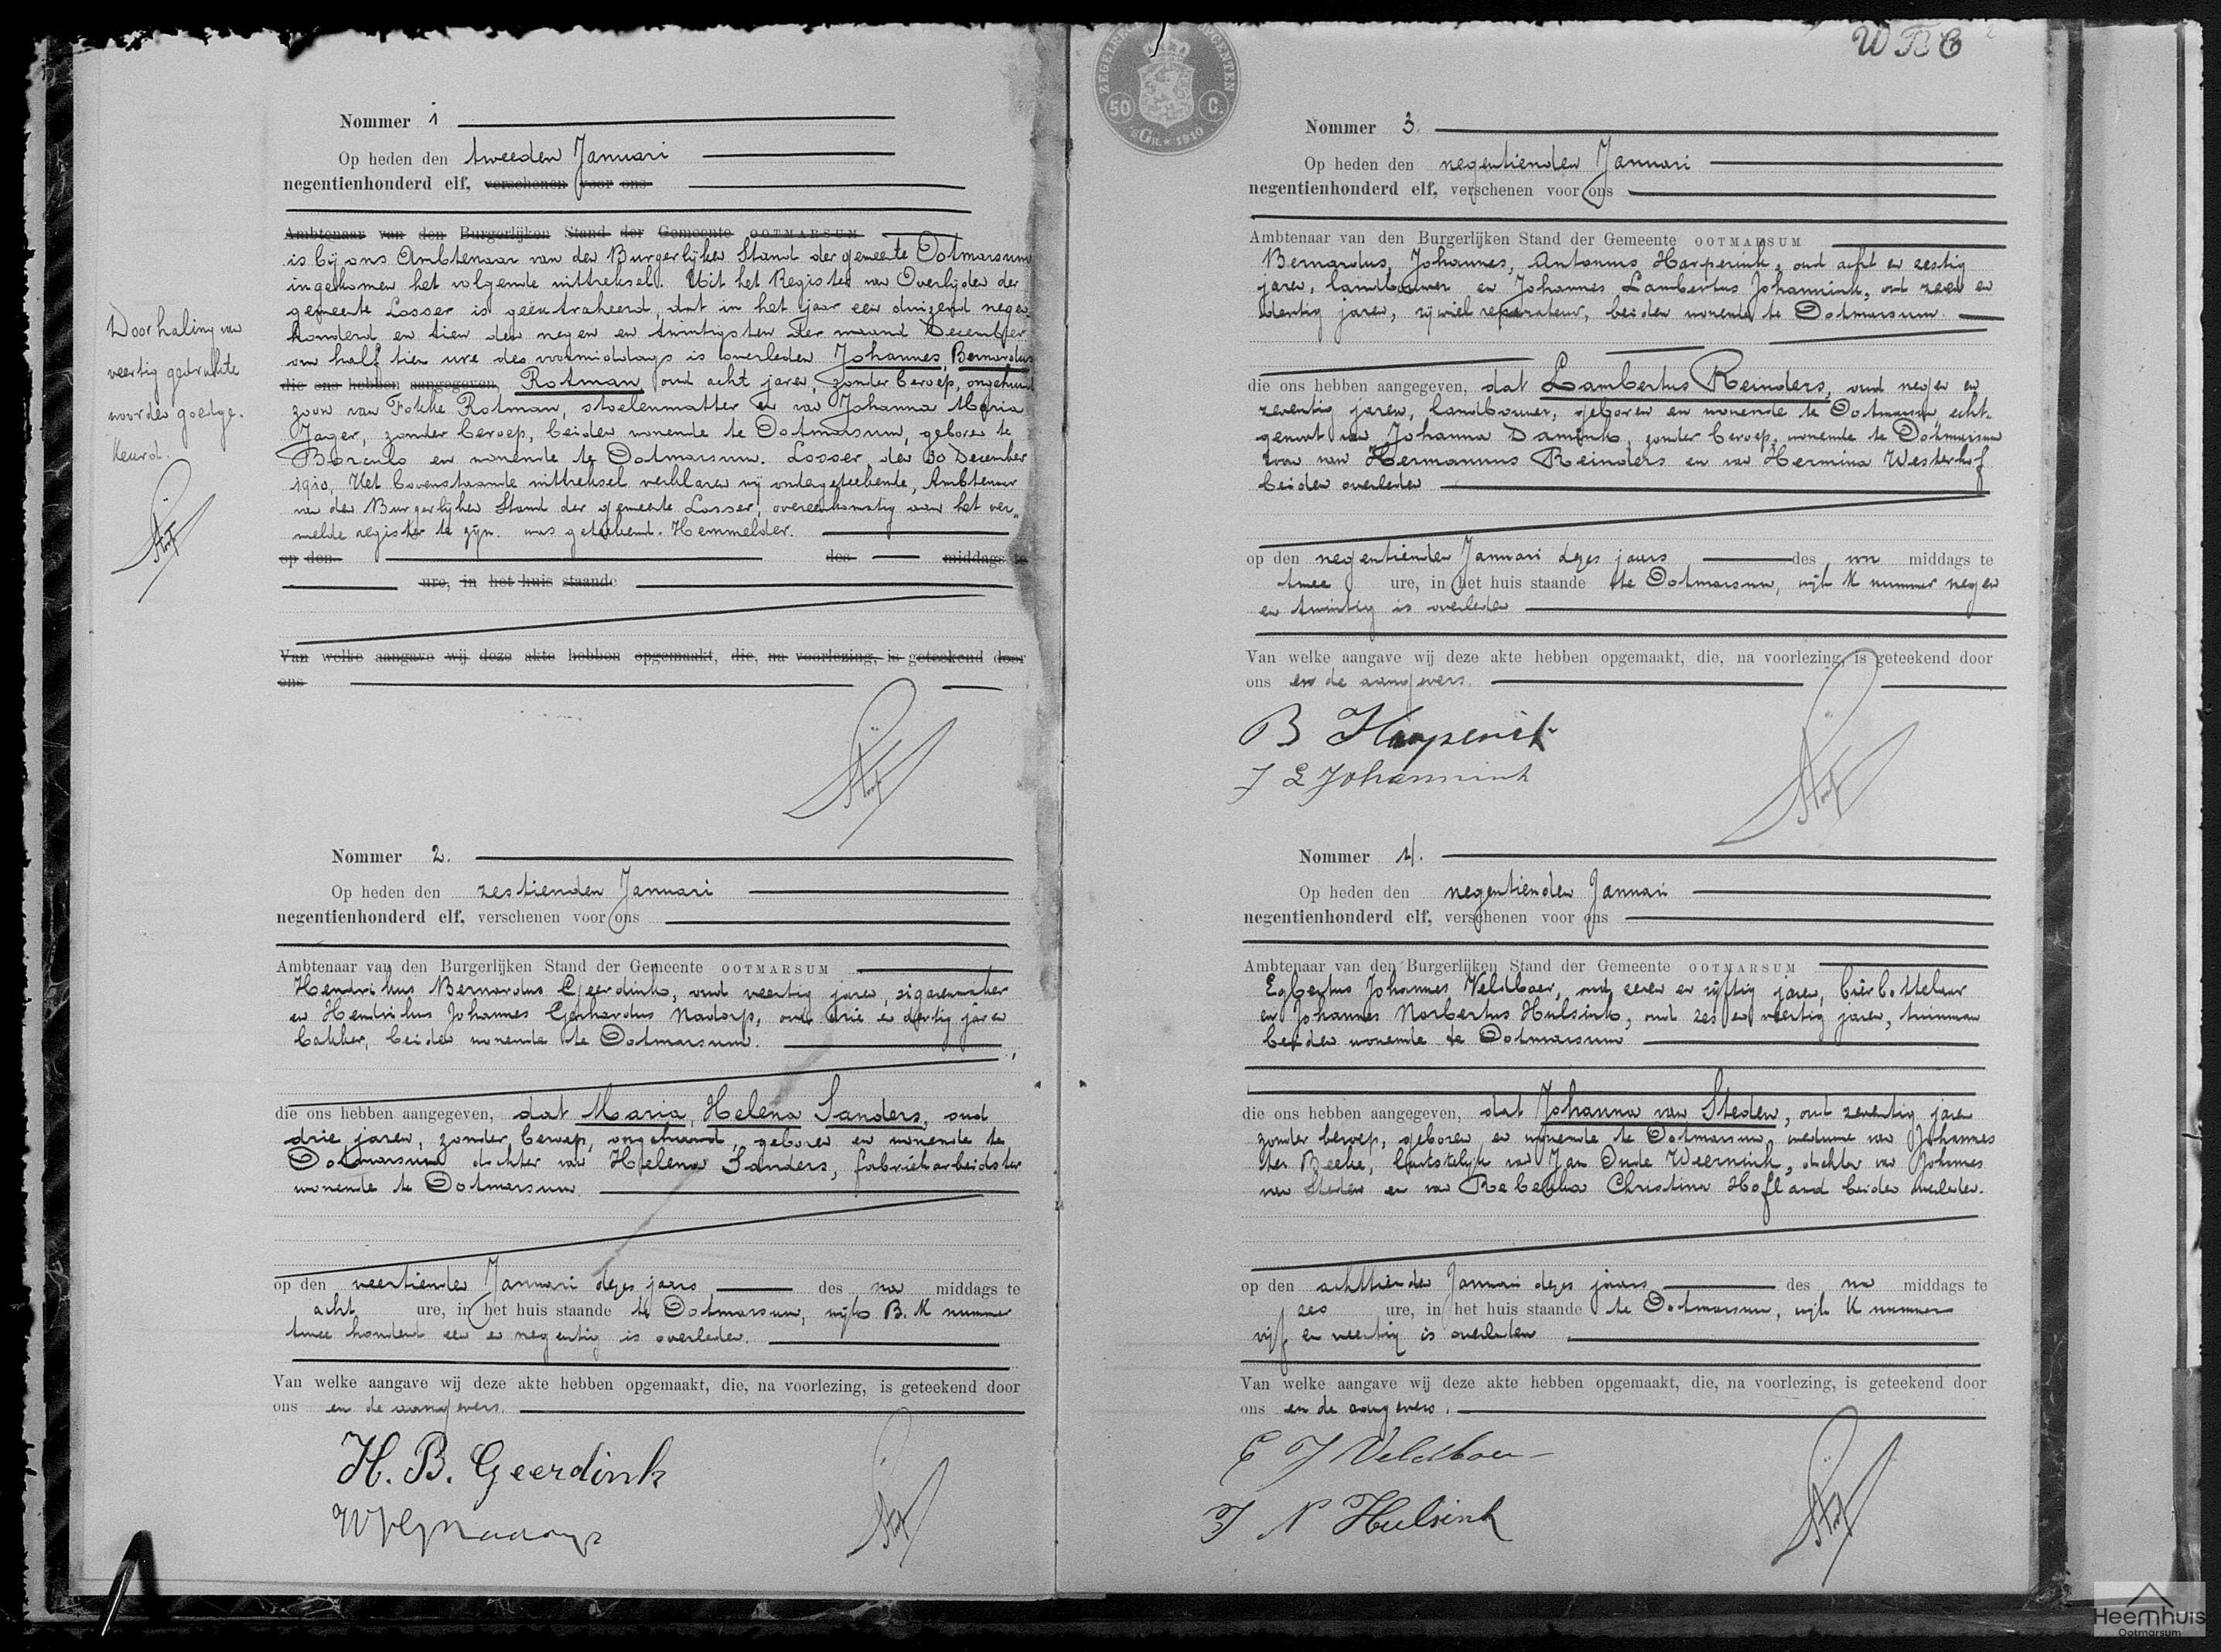 Nommer 1
Op heden den tweeden Januari
negentienhonderd elf, verschenen voor ons
Ambtenaar van den Burgerlijken Stand der Gemeente OOTMARSUM
is bij ons Ambtenaar van den Burgerlijken Stand der gemeente Ootmarsum
ingekomen het volgende uittreksel. Uit het Register van Overlijden der
gemeente Losser is geëxtraheerd, dat in het jaar een duizend negen
honderd en tien den negen en twintigsten der maand December
om half tien ure des voormiddags is overleden Johannes, Bernardus
die ons hebben aangegeven, Rotman, oud acht jaren, zonder beroep, ongehuwd
zoon van Fokke Rotman, stoelenmatter en van Johanna Maria
Jager, zonder beroep, beiden wonende te Ootmarsum, geboren te
Borculo en wonende te Ootmarsum. Losser den 30 December
1910, Het bovenstaande uittreksel verklaren wij ondergeteekende, Ambtenaar
van den Burgerlijken Stand der gemeente Losser, overeenkomstig aan het ver„
melde register te zijn. was geteekend. Hemmelder.
op den des middags te
ure, in het huis staande
Van welke aangave wij deze akte hebben opgemaakt, die, na voorlezing, is geteekend door
ons
Doorhaling van
veertig gedrukte
woorden goedge-
keurd.
Nommer 2.
Op heden den zestienden Januari
negentienhonderd elf, verschenen voor ons
Ambtenaar van den Burgerlijken Stand der Gemeente OOTMARSUM
Hendrikus Bernardus Geerdink, oud veertig jaren, sigarenmaker
en Hendrikus Johannes Gerhardus Nadorp, oud drie en dertig jaren
bakker, beiden wonende te Ootmarsum.
die ons hebben aangegeven, dat Maria, Helena Sanders, oud
drie jaren, zonder beroep, ongehuwd, geboren en wonende te
Ootmarsum dochter van Helena Sanders, fabriekarbeidster
wonende te Ootmarsum
op den veertienden Januari dezes jaars des na middags te
acht ure, in het huis staande te Ootmarsum, wijk B. K nummer
twee honderd een en negentig is overleden.
Van welke aangave wij deze akte hebben opgemaakt, die, na voorlezing, is geteekend door
ons en de aangevers.
H. B. Geerdink
WBC
ZEGELRECHT OPCENTEN
50 C.
'sGR. 1910
Nommer 3.
Op heden den negentienden Januari
negentienhonderd elf, verschenen voor ons
Ambtenaar van den Burgerlijken Stand der Gemeente OOTMARSUM
Bernardus, Johannes, Antonius Harperink, oud acht en zestig
jaren, landbouwer en Johannes Lambertus Johannink, oud zeven en
dertig jaren, rijwielreparateur, beiden wonende te Ootmarsum.
die ons hebben aangegeven, dat Lambertus Reinders, oud negen en
zeventig jaren, landbouwer, geboren en wonende te Ootmarsum, echt-
genoot van Johanna Damink, zonder beroep, wonende te Ootmarsum
zoon van Hermannus Reinders en van Hermina Westerhof
beiden overleden
op den negentienden Januari dezes jaars des voor middags te
twee ure, in het huis staande te Ootmarsum, wijk K nummer negen
en twintig is overleden
Van welke aangave wij deze akte hebben opgemaakt, die, na voorlezing, is geteekend door
ons en de aangevers.
B Harperink
J L Johannink
Nommer 4.
Op heden den negentienden Januari
negentienhonderd elf, verschenen voor ons
Ambtenaar van den Burgerlijken Stand der Gemeente OOTMARSUM
Egbertus Johannes Veldboer, oud eenen en vijftig jaren, bierbottelaar
en Johannes Norbertus Hulsink, oud zes en veertig jaren, tuinman
beiden wonende te Ootmarsum
die ons hebben aangegeven, dat Johanna van Steden, oud zeventig jaren
zonder beroep, geboren en wonende te Ootmarsum, weduwe van Johannes
ter Beeke, laatstelijk van Jan Oude Weernink, dochter van Johannes
van Steden en van Rebekka Christina Hofland beiden overleden.
op den achttienden Januari dezes jaars des na middags te
zes ure, in het huis staande te Ootmarsum, wijk K nummer
vijf en veertig is overleden
Van welke aangave wij deze akte hebben opgemaakt, die, na voorlezing, is geteekend door
ons en de aangevers.
E J Veldboer
J N Hulsink
Heemhuis
Ootmarsum